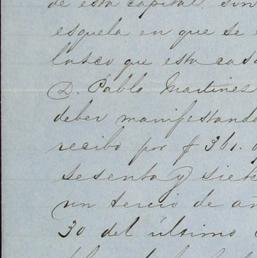 de esta capital sin
esquela en que se
lasco que esta casa
D. Pablo Martines
deber manifestando
recibo por $ 361.
sesenta y siete
un tercio de añ
30 del último